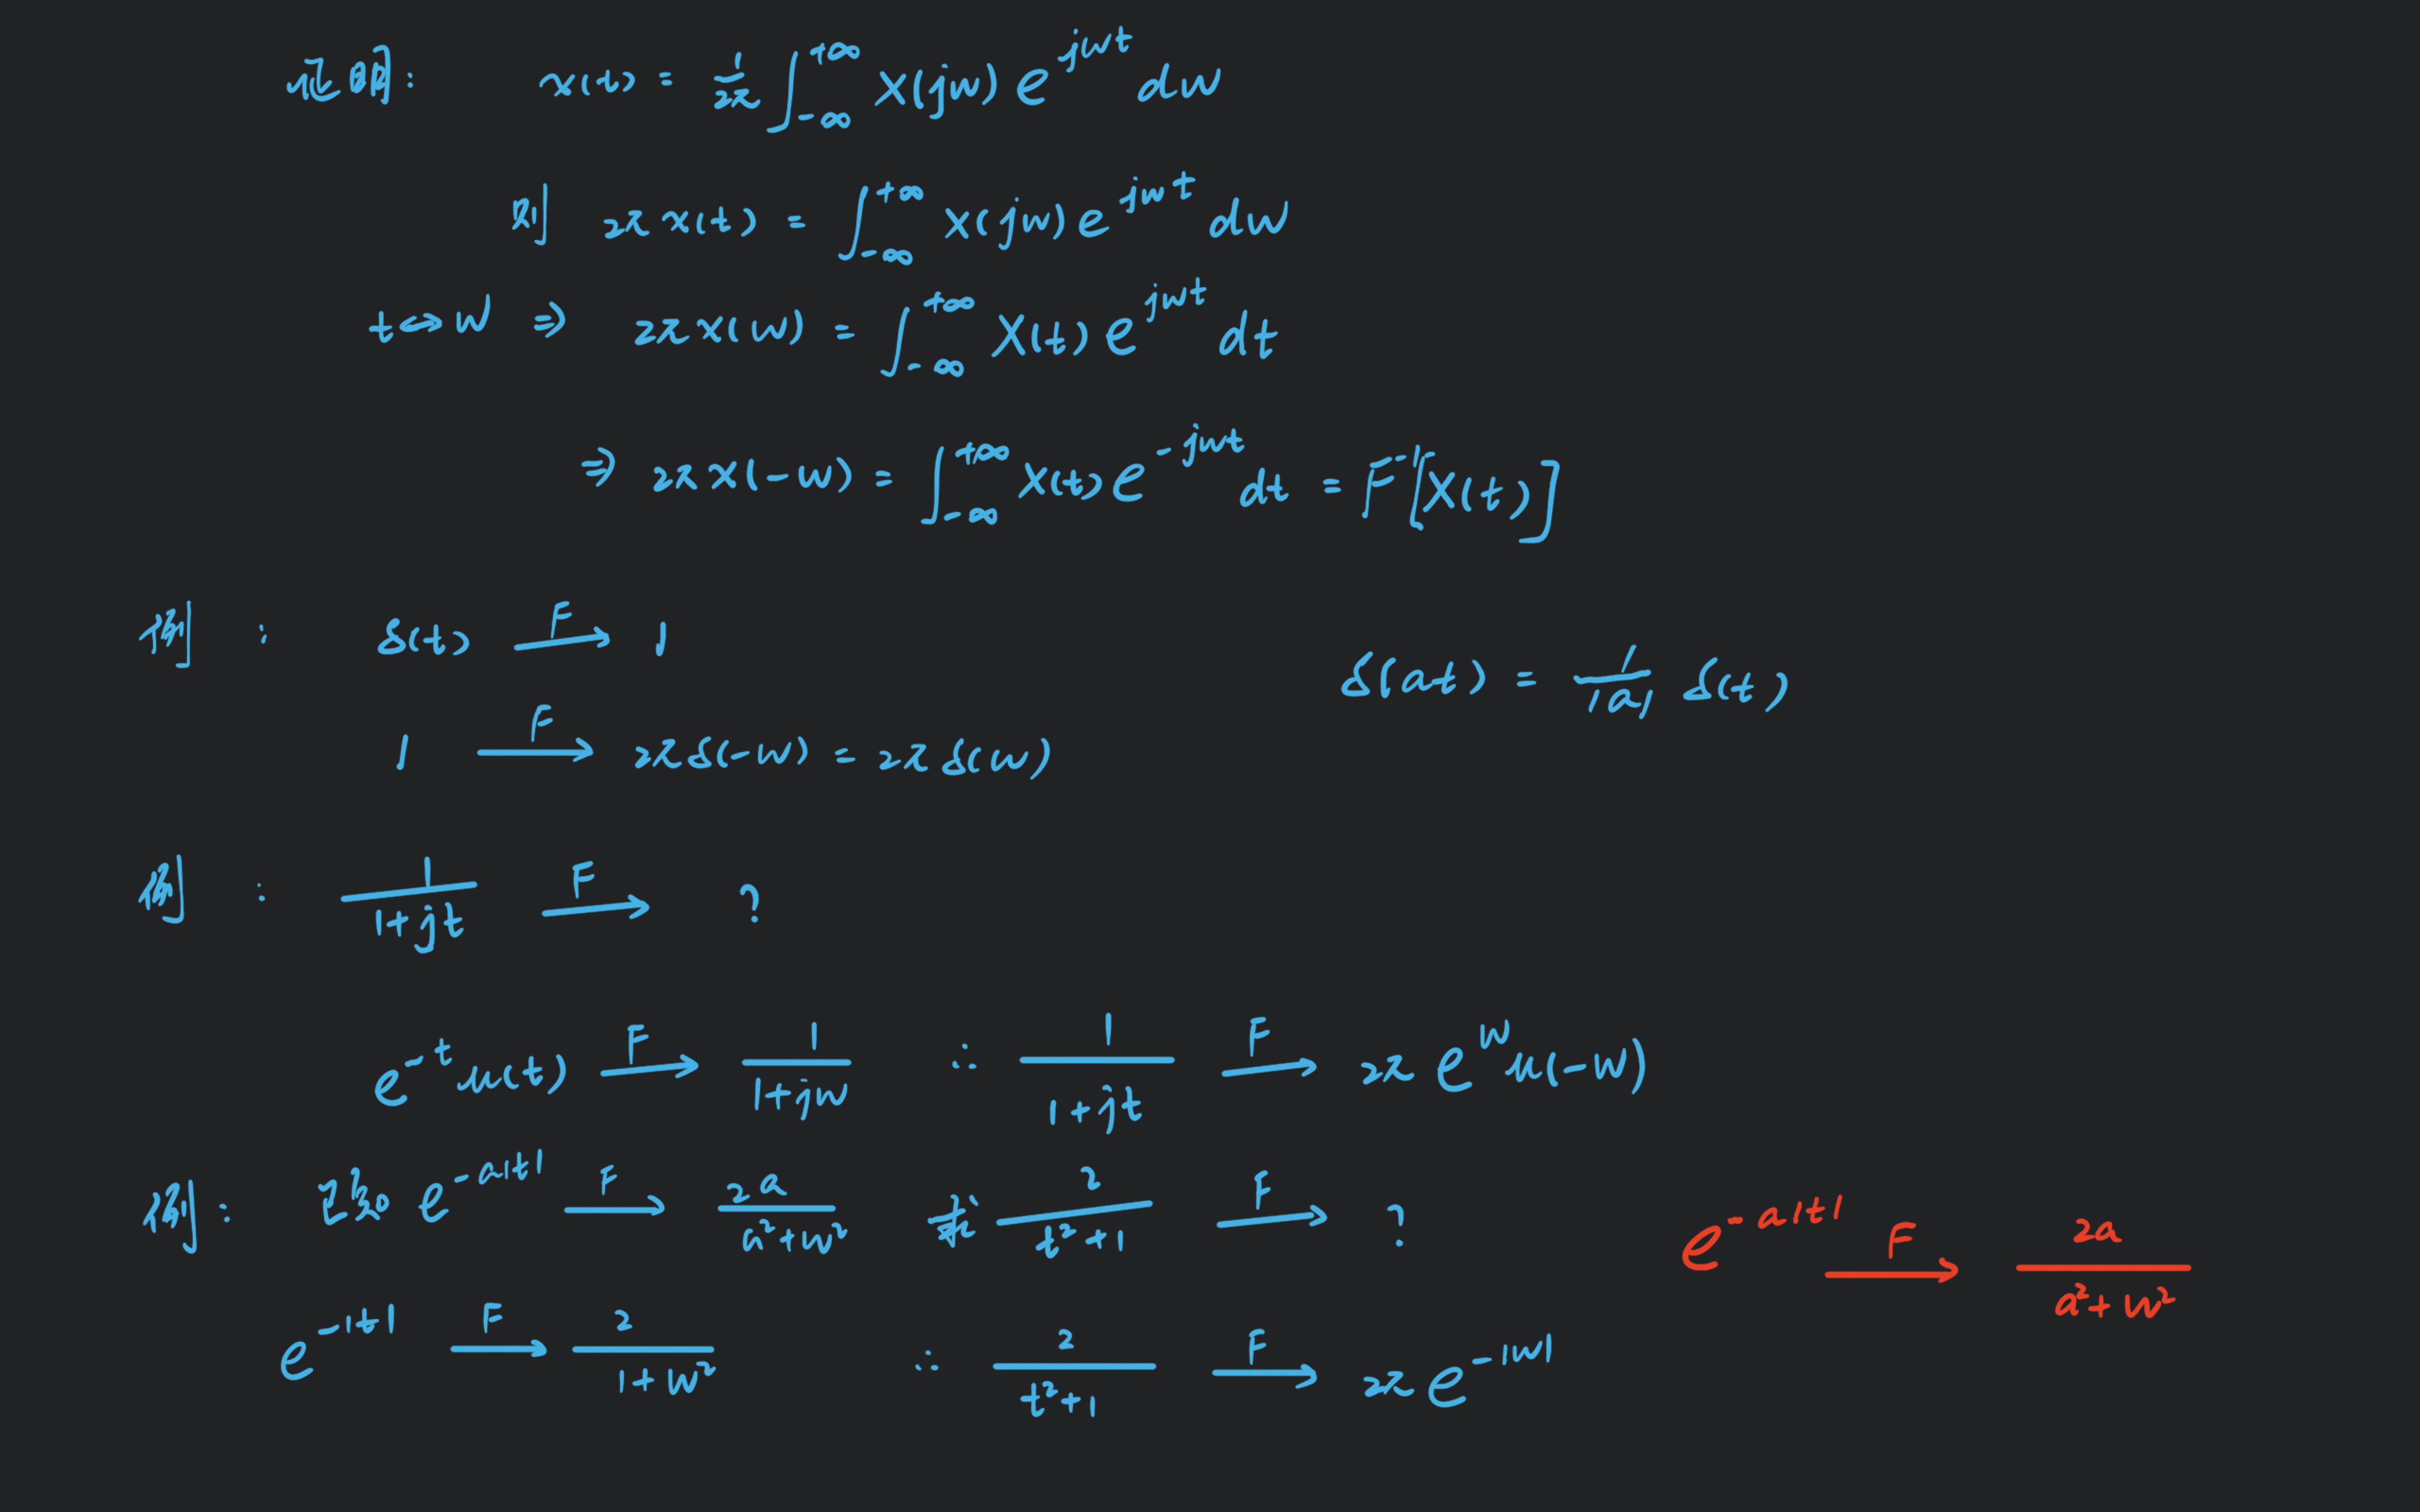 证明: x(t) = 1/2π ∫_{-∞}^{+∞} X(jw) e^{jwt} dw
则 2π x(t) = ∫_{-∞}^{+∞} X(jw) e^{jwt} dw
t↔w ⇒ 2π x(w) = ∫_{-∞}^{+∞} X(t) e^{jwt} dt
⇒ 2π x(-w) = ∫_{-∞}^{+∞} X(t) e^{-jwt} dt = F^{-1}[X(t)]
例: δ(t) —F→ 1
δ(at) = 1/|a| δ(t)
1 —F→ 2πδ(-w) = 2πδ(w)
例: 1/(1+jt) —F→ ?
e^{-t}u(t) —F→ 1/(1+jw) ∴ 1/(1+jt) —F→ 2π e^{w} u(-w)
例: 已知 e^{-a|t|} —F→ 2a/(a²+w²) 求 2/(t²+1) —F→ ?
e^{-a|t|} —F→ 2a/(a²+w²)
e^{-|t|} —F→ 2/(1+w²) ∴ 2/(t²+1) —F→ 2π e^{-|w|}